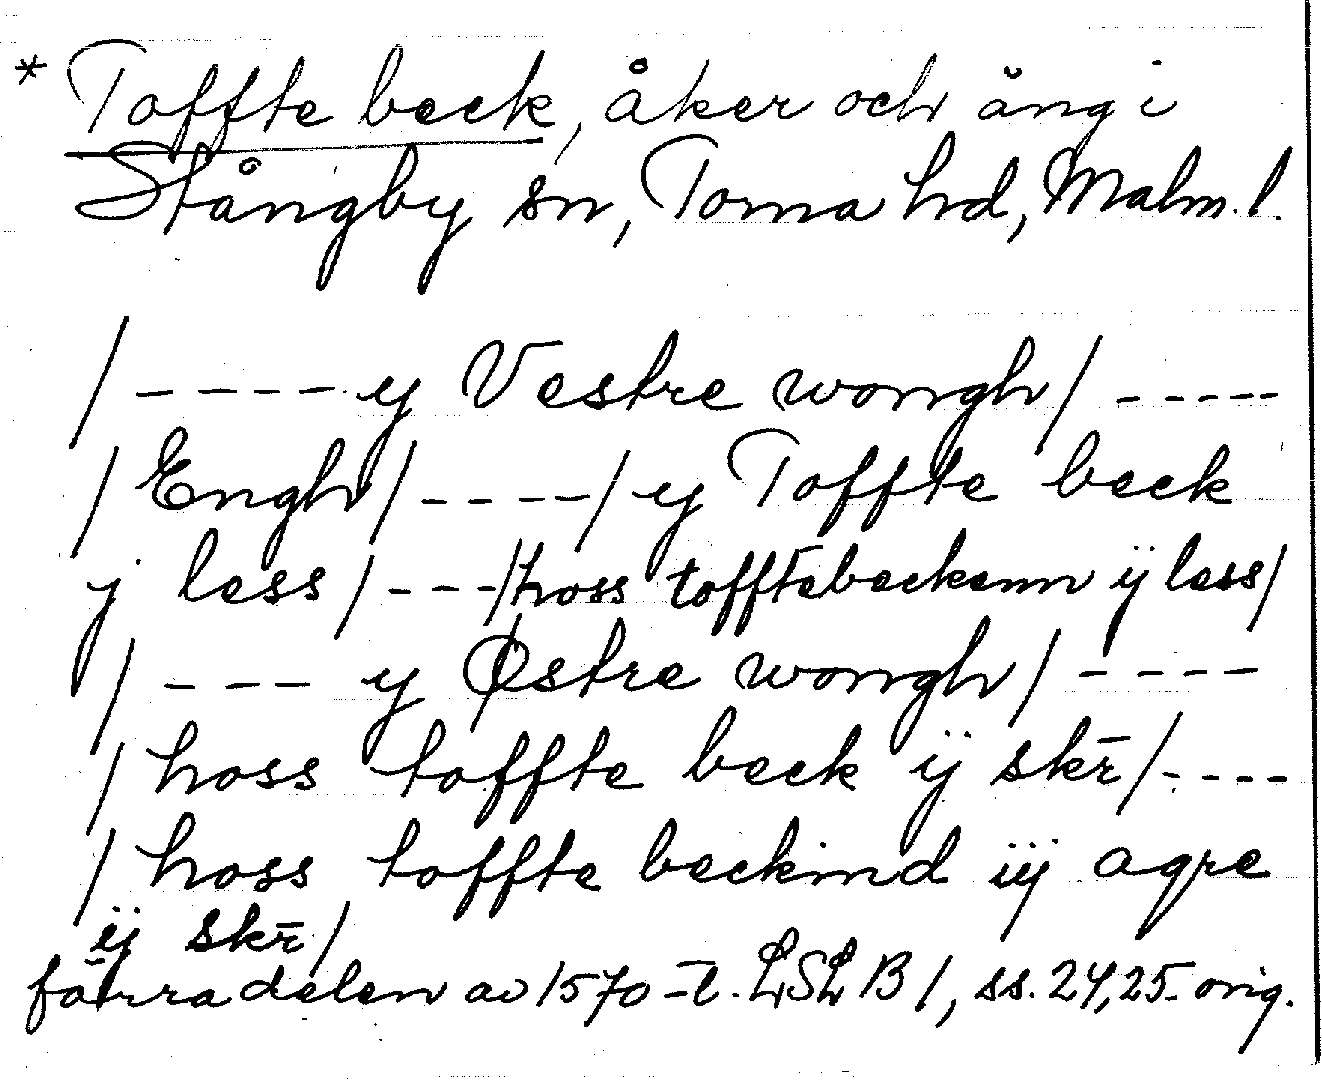 * Toffte beck, åker och äng i
Stångby sn, Torna hd, Malm. l.
/ - - - - - y Vestre wongh / - - - - -
/ Engh / - - - - - / y Toffte beck
j less / - - - / hoss tofftebeckenn ÿ less /
/ - - - y Østre wongh / - - - -
/ hoss toffte beck ÿ skr̄ / - - - -
/ hoss toffte beckind iÿ agre
ÿ skr̄ /
förra delen av 1570-t. LSLB 1, ss. 24, 25. orig.